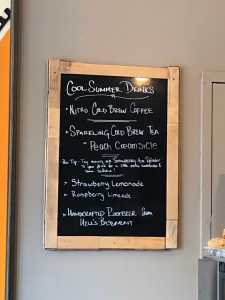 Cool Summer Drinks
• Nitro Cold Brew Coffee
• Sparkling Cold Brew Tea
- Peach Creamsicle
Pro Tip: Try mixing
in your
• Strawberry Lemonade
• Raspberry Limeade
• Handcrafted Rootbeer from
Hell's Basement